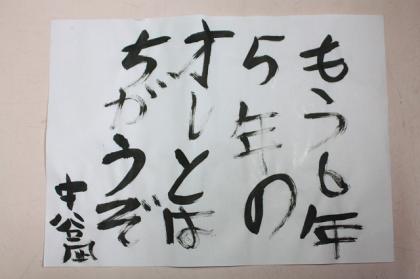 もう6年
5年の
オレとは
ちがうぞ
中谷凪